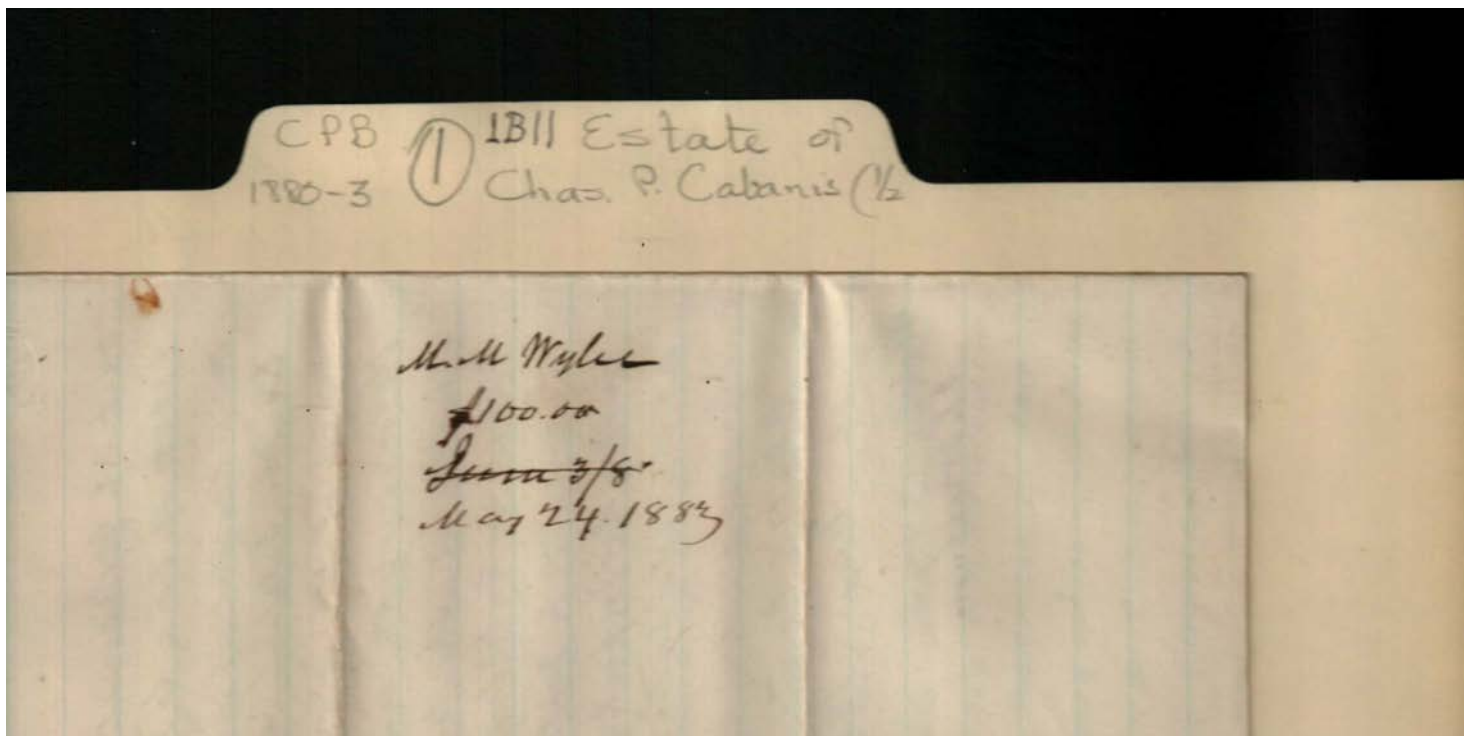 CPB ① 1B11 Estate of
1880-3 Chas. P. Cabanis (1/2
M. M Wylie
$100.00
June 3/8
May 24. 1883